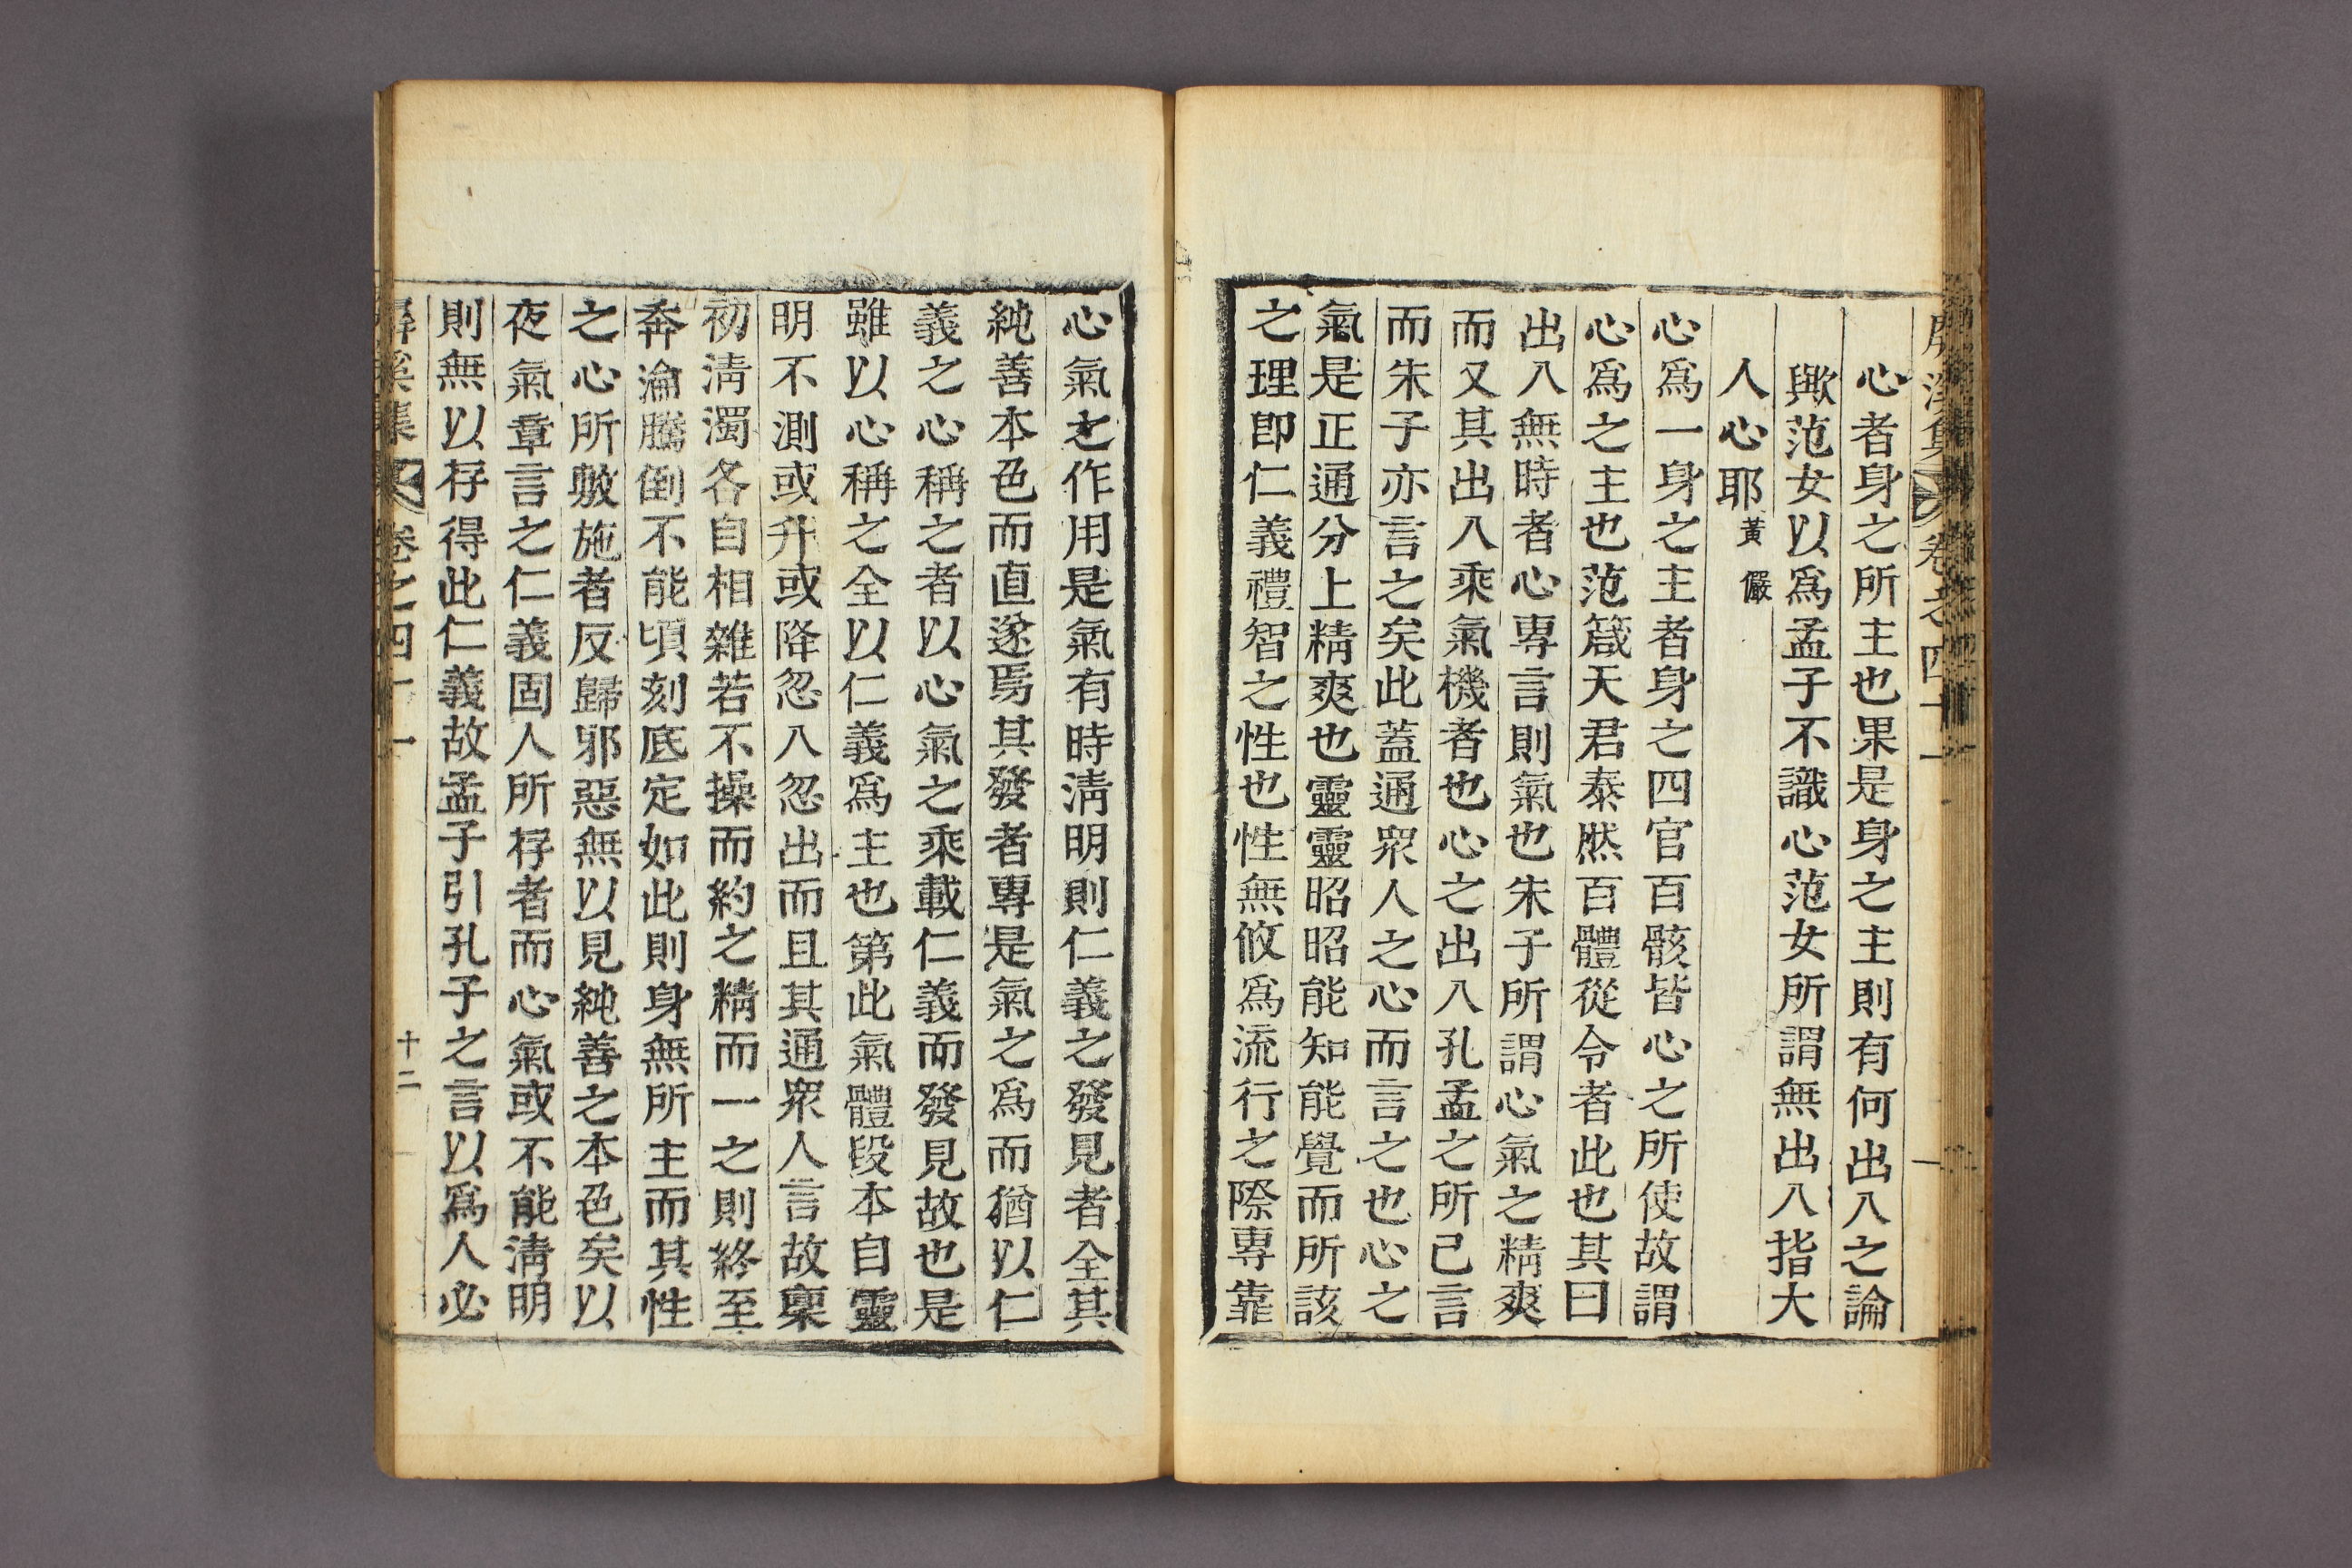 心者身之所主也果是身之主則有何出入之論
歟范女以爲孟子不識心范女所謂無出入指大
人心耶 黃 儼
心爲一身之主者身之四官百骸皆心之所使故謂
心爲之主也范箴天君泰然百體從令者此也其曰
出入無時者心專言則氣也朱子所謂心氣之精爽
而又其出入乘氣機者也心之出入孔孟之所已言
而朱子亦言之矣此蓋通衆人之心而言之也心之
氣是正通分上精爽也靈靈昭昭能知能覺而所該
之理卽仁義禮智之性也性無攸爲流行之際專靠
心氣之作用是氣有時淸明則仁義之發見者全其
純善本色而直遂焉其發者專是氣之爲而猶以仁
義之心稱之者以心氣之乘載仁義而發見故也是
雖以心稱之全以仁義爲主也第此氣體段本自靈
明不測或升或降忽入忽出而且其通衆人言故稟
初淸濁各自相雜若不操而約之精而一之則終至
奔淪騰倒不能頃刻底定如此則身無所主而其性
之心所敷施者反歸邪惡無以見純善之本色矣以
夜氣章言之仁義固人所存者而心氣或不能淸明
則無以存得此仁義故孟子引孔子之言以爲人必
屛溪集 卷之四十一 十二